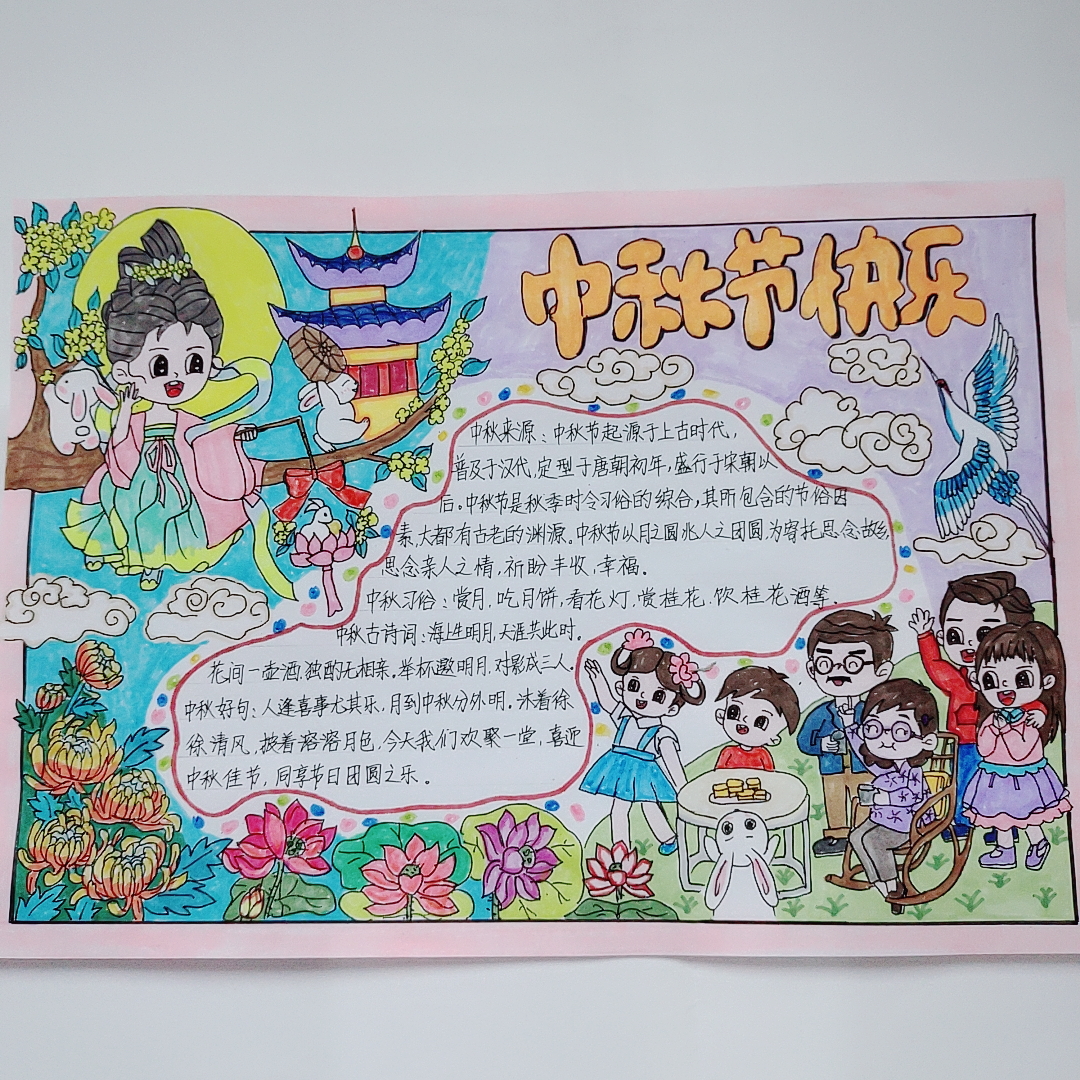 中秋节快乐
中秋来源：中秋节起源于上古时代，
普及于汉代，定型于唐朝初年，盛行于宋朝以
后。中秋节是秋季时令习俗的综合，其所包含的节俗因
素，大都有古老的渊源。中秋节以月之圆兆人之团圆，为寄托思念故乡，
思念亲人之情，祈盼丰收，幸福。
中秋习俗：赏月，吃月饼，看花灯，赏桂花，饮桂花酒等。
中秋古诗词：海上生明月，天涯共此时。
花间一壶酒，独酌无相亲，举杯邀明月，对影成三人。
中秋好句：人逢喜事尤其乐，月到中秋分外明。沐着徐
徐清风，披着溶溶月色，今天我们欢聚一堂，喜迎
中秋佳节，同享节日团圆之乐。